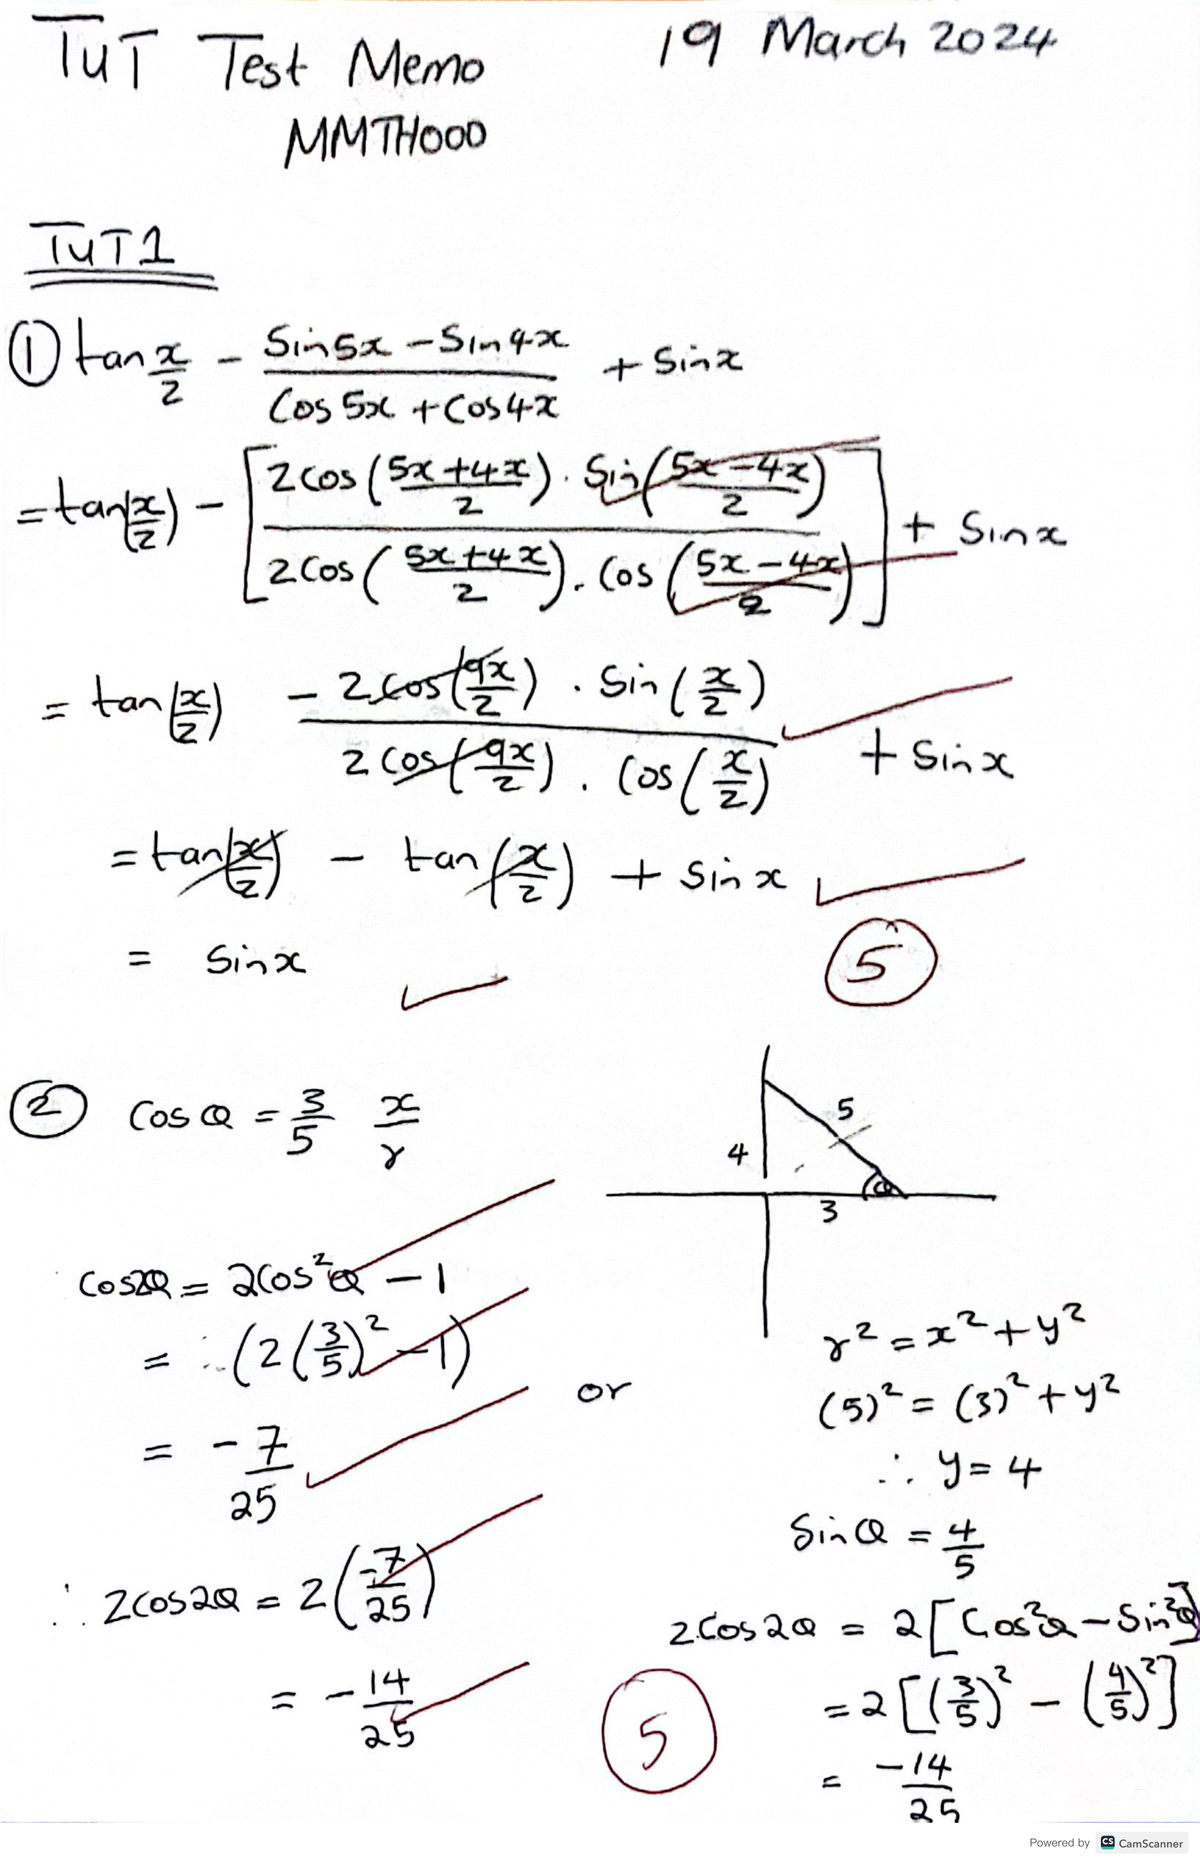 TUT Test Memo 19 March 2024
MMTH000
TUT1
① tan x/2 - (Sin5x - Sin4x)/(Cos5x + Cos4x) + Sinx
= tan(x/2) - [2cos((5x+4x)/2) . Sin((5x-4x)/2) / 2cos((5x+4x)/2) . Cos((5x-4x)/2)] + Sinx
= tan(x/2) - 2cos(9x/2) . Sin(x/2) / 2cos(9x/2) . Cos(x/2) + Sinx
= tan(x/2) - tan(x/2) + Sinx
= Sinx
5
② Cosθ = 3/5 x/r
5
4
θ
3
Cos2θ = 2Cos²θ - 1
= ∴(2(3/5)² - 1)
= -7/25
∴ 2cos2θ = 2(-7/25)
= -14/25
or
r² = x² + y²
(5)² = (3)² + y²
∴ y = 4
Sinθ = 4/5
2Cos2θ = 2[Cos²θ - Sin²θ]
= 2[(3/5)² - (4/5)²]
= -14/25
5
Powered by CS CamScanner